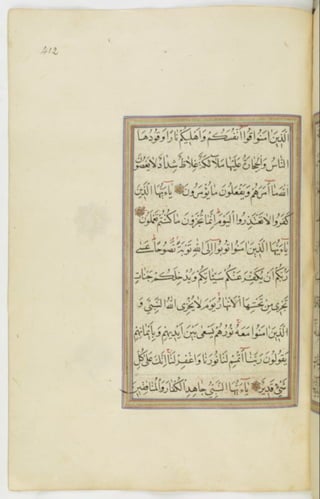 212
الَّذِينَ اٰمَنُوا قُوا اَنْفُسَكُمْ وَاَهْلِيكُمْ نَارًا وَقُودُهَا
النَّاسُ وَالْحِجَارَةُ عَلَيْهَا مَلٰٓئِكَةٌ غِلَاظٌ شِدَادٌ لَا يَعْصُونَ
اللّٰهَ مَا اَمَرَهُمْ وَيَفْعَلُونَ مَا يُؤْمَرُونَ يَا اَيُّهَا الَّذِينَ
كَفَرُوا لَا تَعْتَذِرُوا الْيَوْمَ اِنَّمَا تُجْزَوْنَ مَا كُنْتُمْ تَعْمَلُونَ
يَا اَيُّهَا الَّذِينَ اٰمَنُوا تُوبُوا اِلَى اللّٰهِ تَوْبَةً نَصُوحًا عَسٰى
رَبُّكُمْ اَنْ يُكَفِّرَ عَنْكُمْ سَيِّئَاتِكُمْ وَيُدْخِلَكُمْ جَنَّاتٍ
تَجْرِي مِنْ تَحْتِهَا الْاَنْهَارُ يَوْمَ لَا يُخْزِي اللّٰهُ النَّبِيَّ وَ
الَّذِينَ اٰمَنُوا مَعَهُ نُورُهُمْ يَسْعٰى بَيْنَ اَيْدِيهِمْ وَبِاَيْمَانِهِمْ
يَقُولُونَ رَبَّنَا اَتْمِمْ لَنَا نُورَنَا وَاغْفِرْ لَنَا اِنَّكَ عَلٰى كُلِّ
شَيْءٍ قَدِيرٌ يَا اَيُّهَا النَّبِيُّ جَاهِدِ الْكُفَّارَ وَالْمُنَافِقِينَ